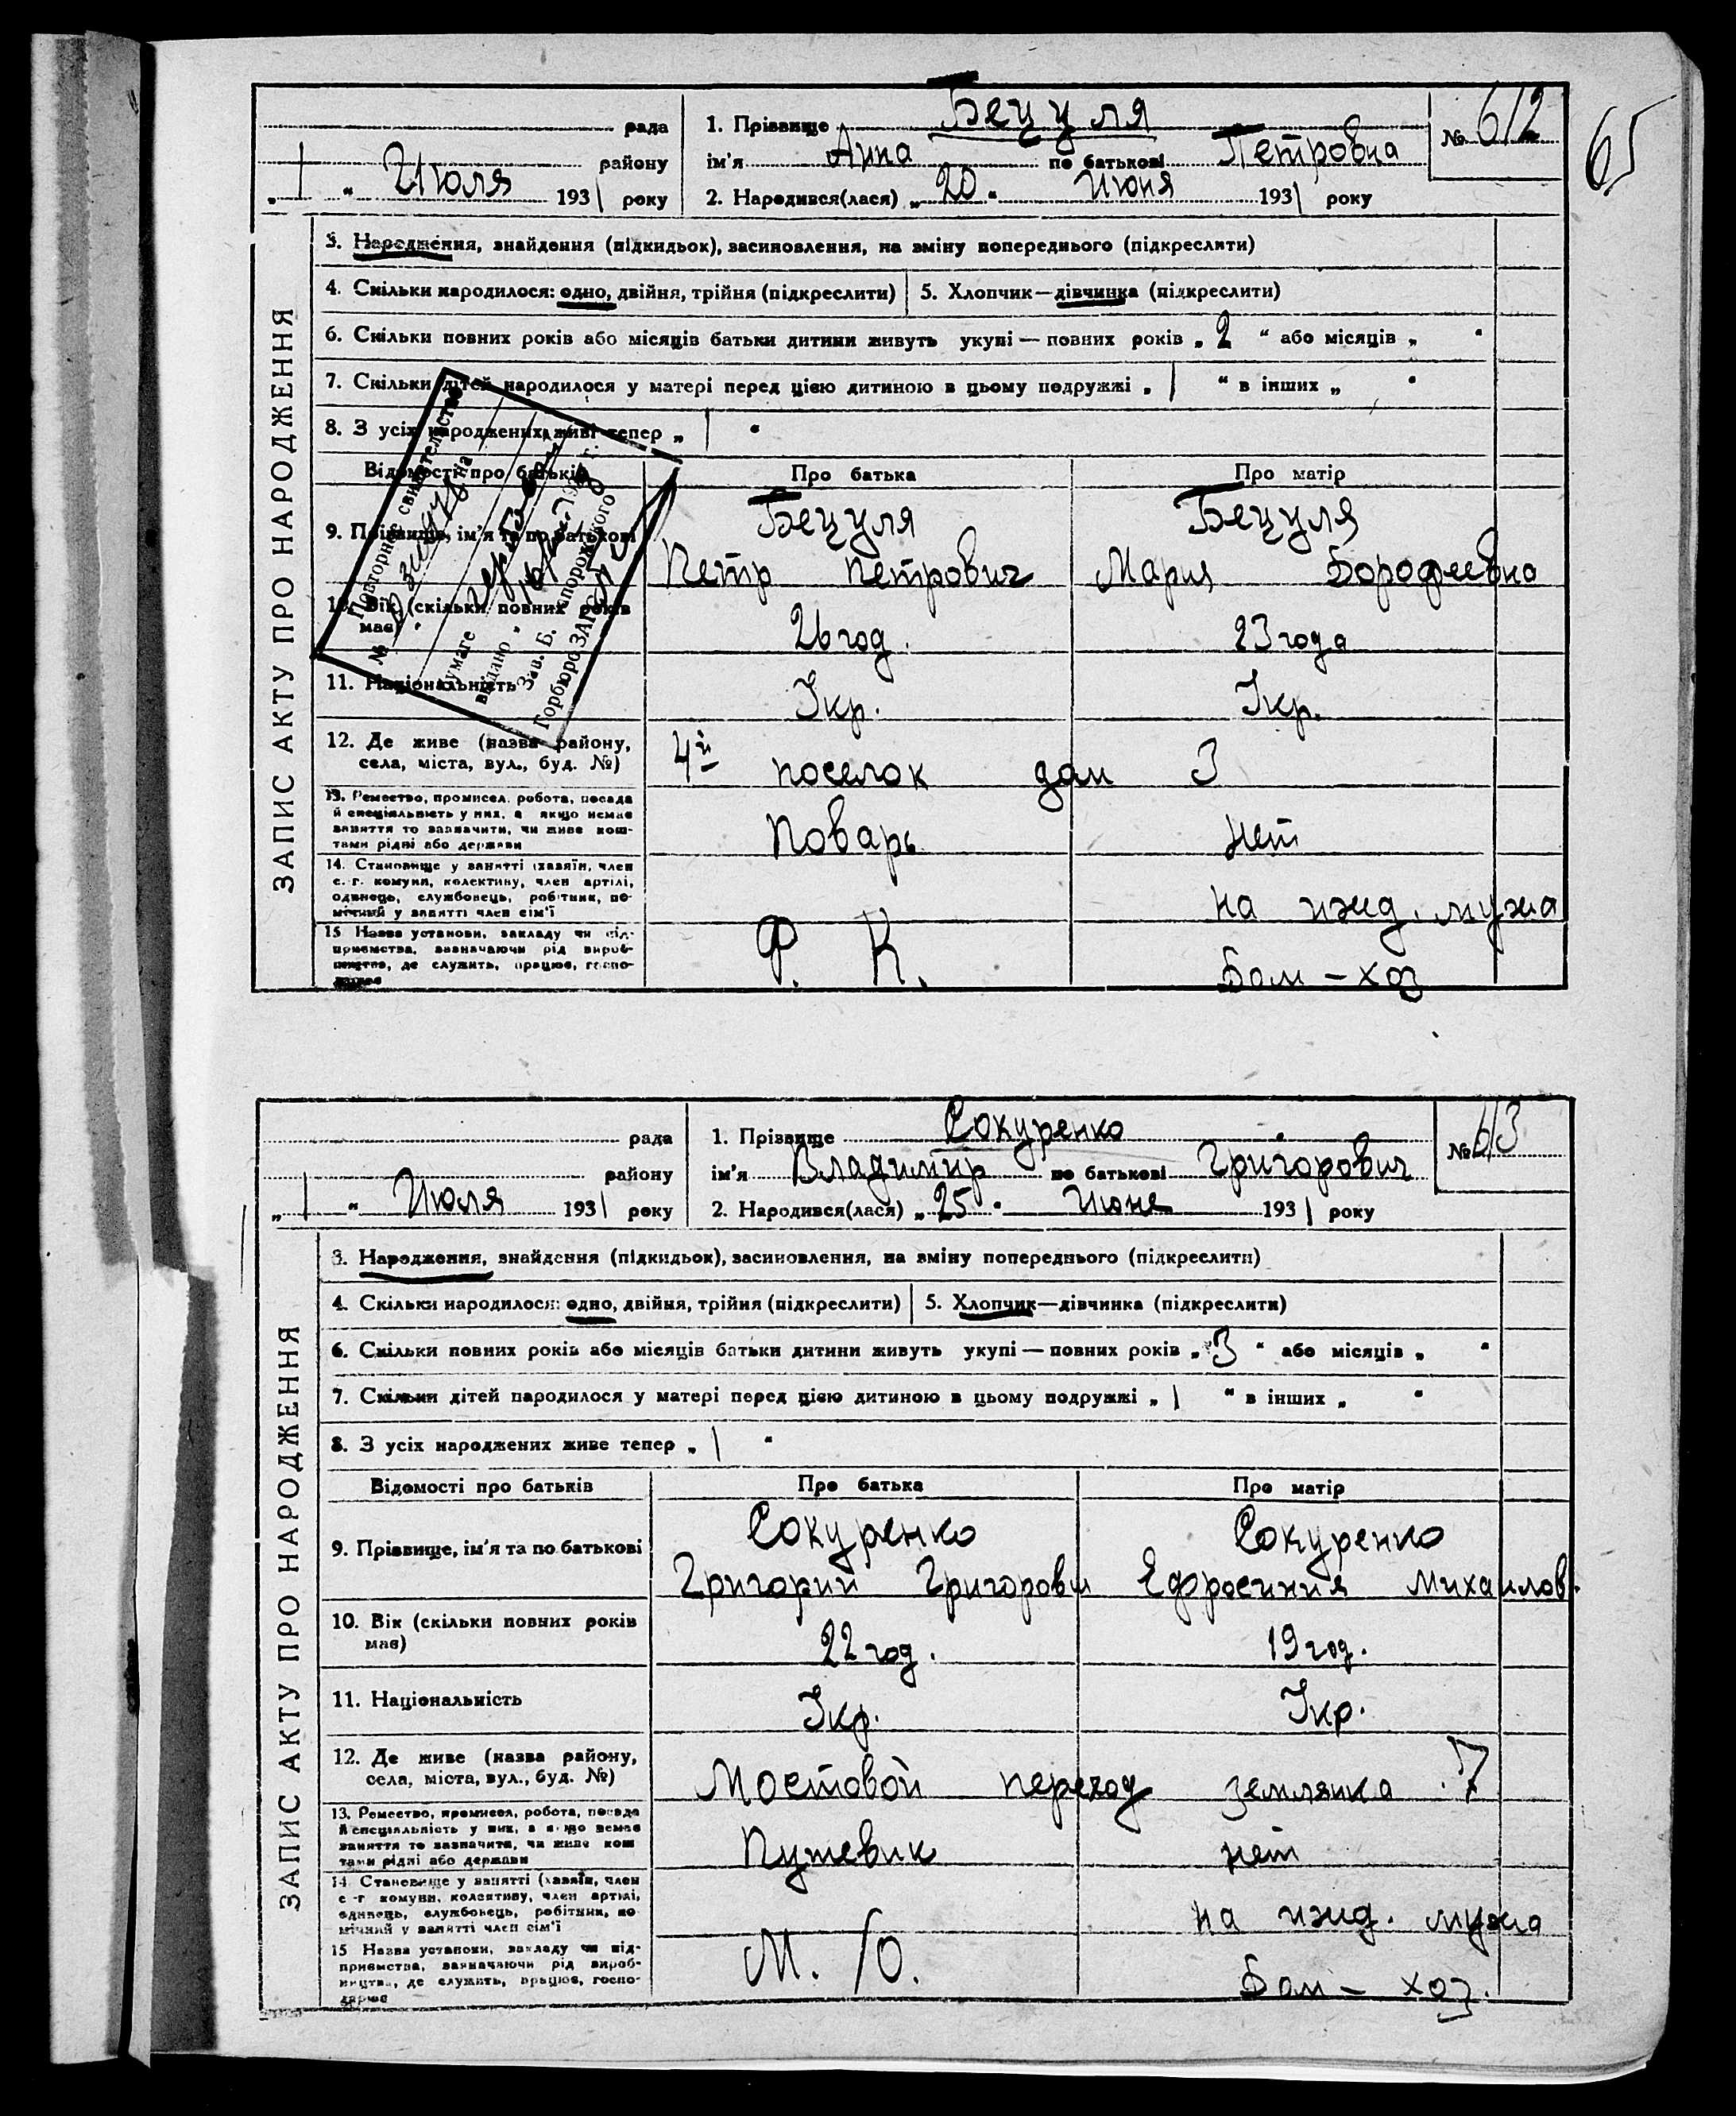 65
рада
району
„ 1 " Июля 1931 року
1. Прізвище Бецуля
ім'я Анна по батькові Петровна
2. Народився(лася) „ 20 " Июня 1931 року
№ 612
ЗАПИС АКТУ ПРО НАРОДЖЕННЯ
3. Народження, знайдення (підкидьок), засиновлення, на зміну попереднього (підкреслити)
4. Скільки народилося: одно, двійня, трійня (підкреслити) 5. Хлопчик—дівчинка (підкреслити)
6. Скільки повних років або місяців батьки дитини живуть укупі — повних років „ 2 " або місяців „ "
7. Скільки дітей народилося у матері перед цією дитиною в цьому подружжі „ 1 " в інших „ "
8. З усіх народжених живі тепер „ 1 "
Відомості про батьків Про батька Про матір
9. Прізвище, ім'я та по батькові Бецуля Бецуля
Петр Петрович Мария
10. Вік (скільки повних років має) 26 год. 23 года
11. Національність Укр. Укр.
12. Де живе (назва району,
села, міста, вул., буд. №) 4й поселок дом 3
13. Ремество, промисел, робота, посада
й спеціяльність у них, а якщо немає
заняття то зазначити, чи живе кош-
тами рідні або держави
Поварь нет
14. Становище у занятті (хазяїн, член
с.-г. комуни, колективу, член артілі,
одинець, службовець, робітник, по-
мічний у занятті член сім'ї
на ижд. мужа
15 Назва установи, закладу чи під-
приємства, зазначаючи рід вироб-
ництва, де служить, працює, госпо-
дарює
Ф. К. Бом-хоз
Повторное свидетельство
№ на
бумаге
выдано „
Зав. Б. Запорожского
Горбюро ЗАГС
рада
району
„ 1 " Июля 1931 року
1. Прізвище Сокуренко
ім'я Владимир по батькові Григорович
2. Народився(лася) „ 25 " Июне 1931 року
№ 613
ЗАПИС АКТУ ПРО НАРОДЖЕННЯ
3. Народження, знайдення (підкидьок), засиновлення, на зміну попереднього (підкреслити)
4. Скільки народилося: одно, двійня, трійня (підкреслити) 5. Хлопчик—дівчинка (підкреслити)
6. Скільки повних років або місяців батьки дитини живуть укупі — повних років „ 3 " або місяців „ "
7. Скільки дітей народилося у матері перед цією дитиною в цьому подружжі „ 1 " в інших „ "
8. З усіх народжених живе тепер „ 1 "
Відомості про батьків Про батька Про матір
9. Прізвище, ім'я та по батькові Сокуренко Сокуренко
Григорий Григорович Ефросиния Михаилов.
10. Вік (скільки повних років
має) 22 год. 19 год.
11. Національність Укр. Укр.
12. Де живе (назва району,
села, міста, вул., буд. №) Мостовой переход землянка 7
13. Ремество, промисел, робота, посада
й спеціяльність у них, а якщо немає
заняття то зазначити, чи живе кош
тами рідні або держави
Путевик нет
14. Становище у занятті (хазяїн, член
с-г комуни, колективу, член артілі,
одинець, службовець, робітник, по
мічний у занятті член сім'ї
на ижд. мужа
15 Назва установи, закладу чи під-
приємства, зазначаючи рід вироб-
ництва, де служить, працює, госпо-
дарює
М. Ю. Бом-хоз.